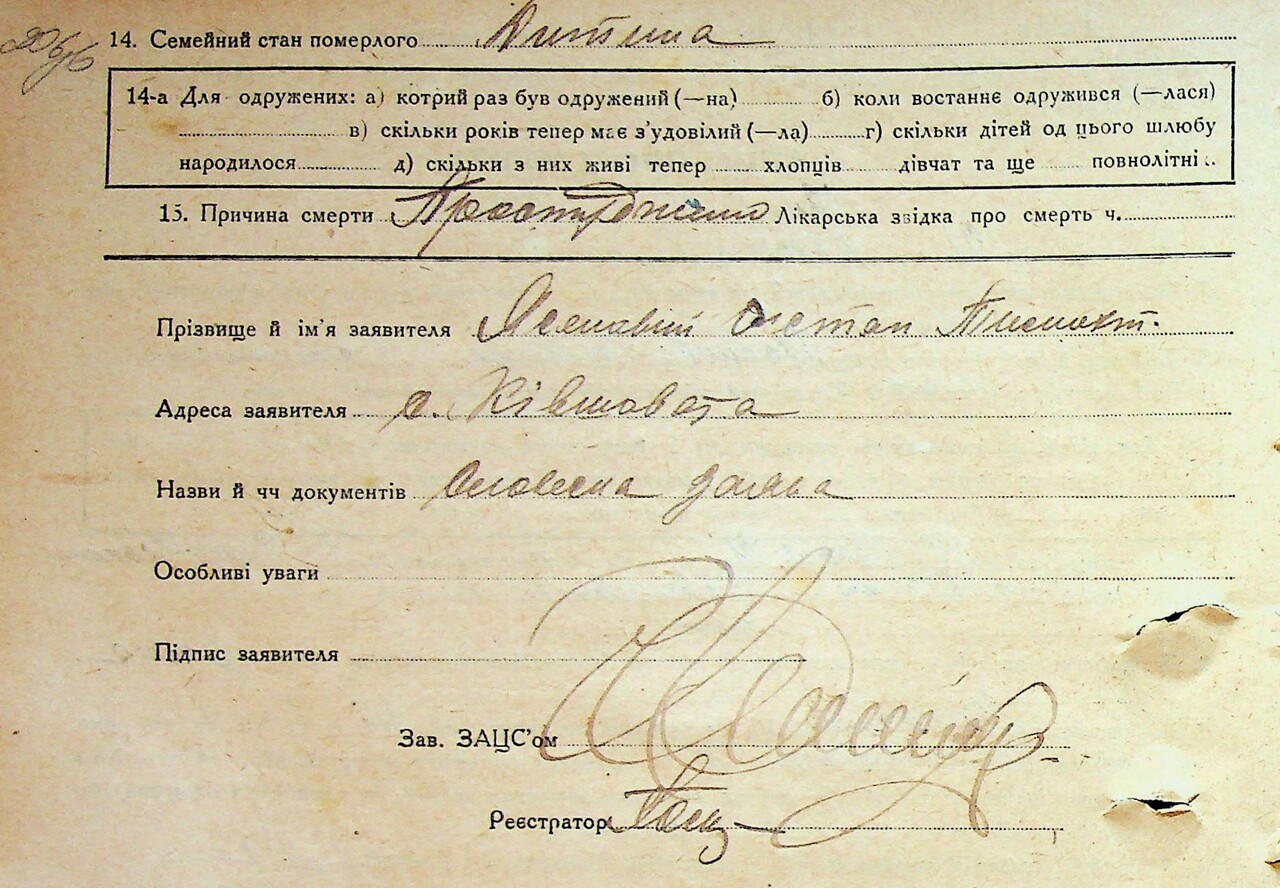 14. Семейний стан померлого Дитина
14-а Для одружених: а) котрий раз був одружений (—на) б) коли востаннє одружився (—лася)
в) скільки років тепер має з'удовілий (—ла) г) скільки дітей од цього шлюбу
народилося д) скільки з них живі тепер хлопців дівчат та ще повнолітні
15. Причина смерти Лікарська звідка про смерть ч.
Прізвище й ім'я заявителя
Адреса заявителя с. Ківшовата
Назви й чч документів Словесна заява
Особливі уваги
Підпис заявителя
Зав. ЗАЦС'ом
Реєстратор